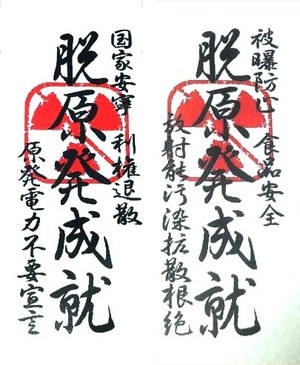 被曝防止 食品安全
脱原発成就
放射能汚染拡散根絶
国家安寧 利権退散
脱原発成就
原発電力不要宣言